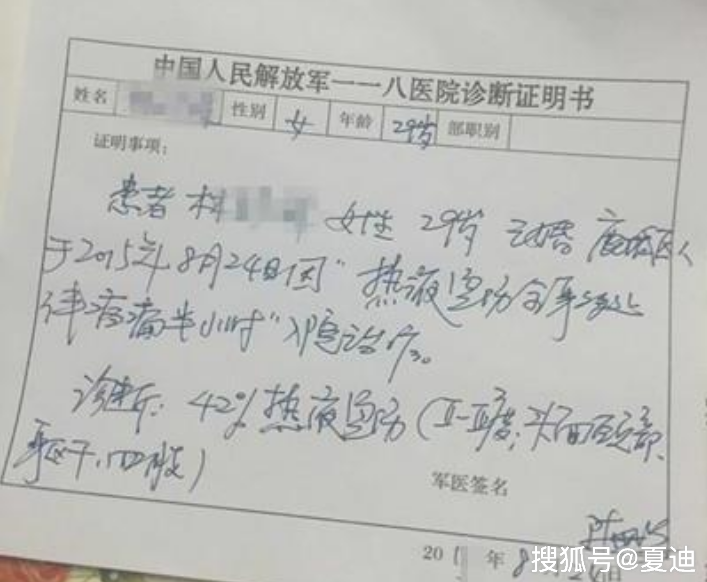 中国人民解放军一一八医院诊断证明书
姓名 性别 女 年龄 29岁 部职别
证明事项:
患者 林 女性 29岁 已婚 鹿城区人
于2015年8月24日因"热液烫伤全身多处
伴疼痛半小时"入院治疗。
诊断: 42%热液烫伤(II-III度;头面颈部、
躯干、四肢)
军医签名
201 年 8
搜狐号@夏迪